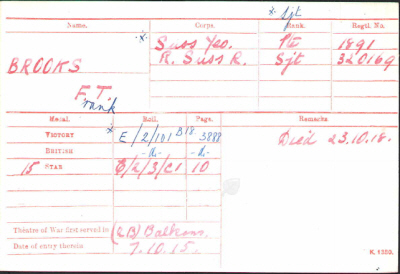 * Sjt
Name. Corps. Rank. Regtl. No.
* Suss Yeo. Pte 1891
BROOKS R. Suss R. Sjt 320169
F.T.
rank
Medal. Roll. Page. Remarks.
VICTORY * E/2/101 B18 3888 Died 23.10.18.
BRITISH -do- -do-
15 STAR E/2/3/C1 10
Theatre of War first served in (2B) Balkans.
Date of entry therein 7.10.15.
K. 1380.